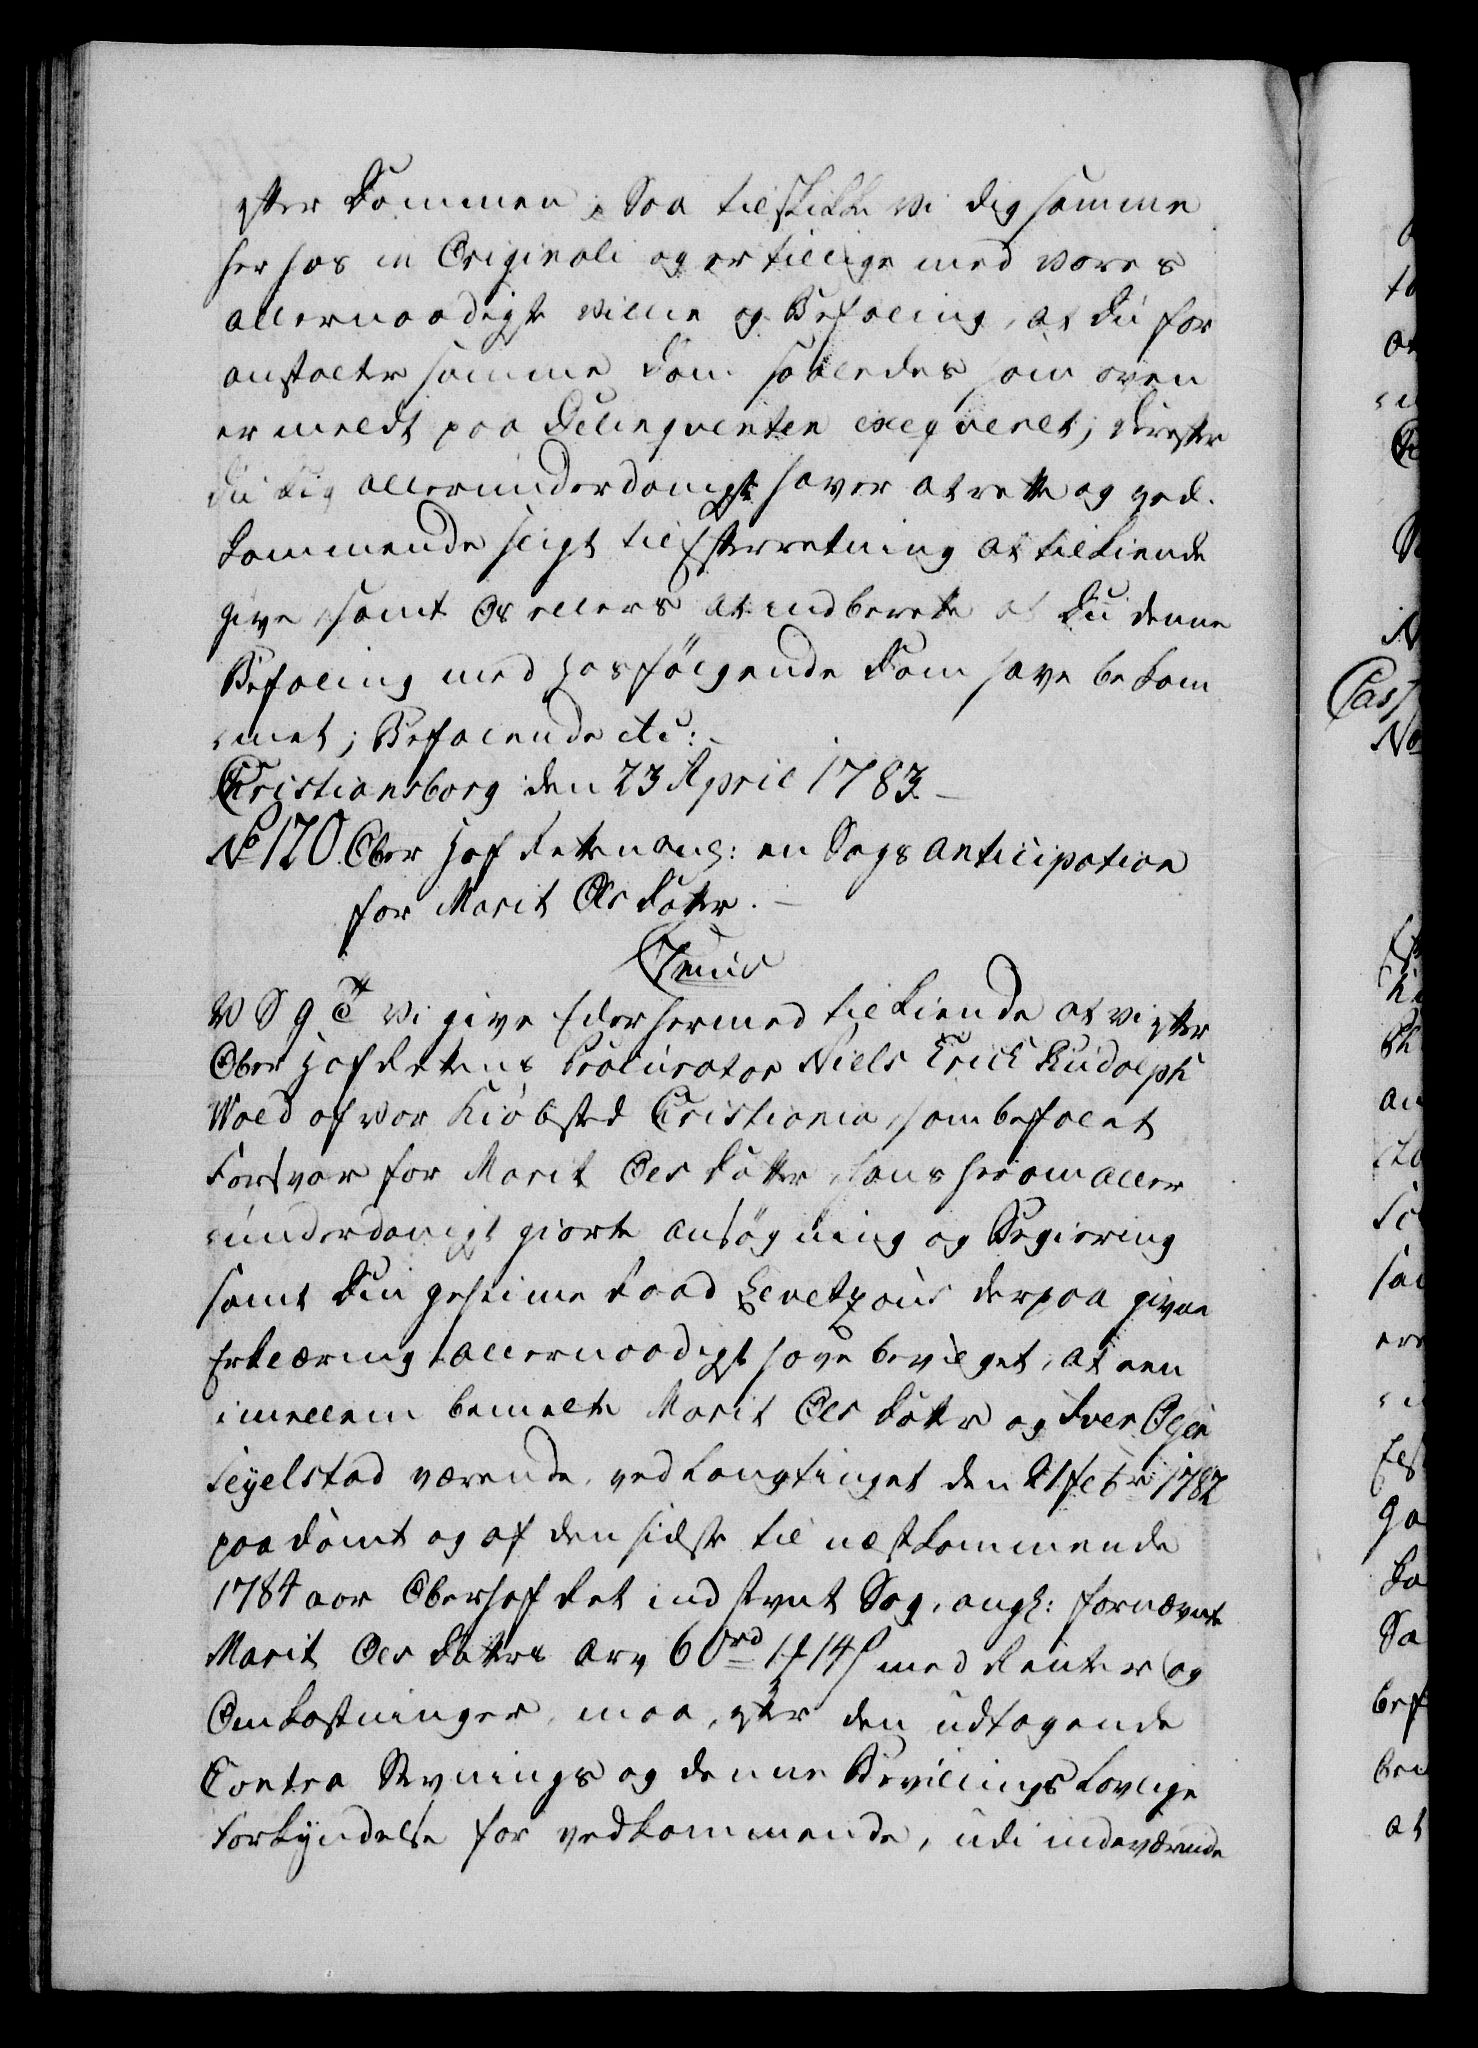 efter Dommen; Saa tilskikke vi dig samme
her hos in Originali og er tillige med vores
allernaadigste Villie og Befaling, at Du for
anstalter samme Dom saaledes som oven
er meldt paa Delinqventen exeqveret; derefter
Du dig allerunderdanigst haver at rette og ved-
kommende sligt til Efterretning at tilkiende
give, samt Os ellers at indberette at Du denne
Befaling med hosfölgende Dom have bekom
met; Befalende etc:
Christiansborg den 23 April 1783.
No 120. Ober Hof Retten ang: en Sags Anticipation
for Marit Ols Datter.
V S G T Vi give Eder hermed tilkiende at vi efter
Ober Hof Rettens Procurator Niels Erich Rudolph
Wold af vor Kiöbsted Christiania, som befalet
Forsvar for Marit Ols Datter, hans herom aller
underdanigst giorte Ansögning og Begiering
samt Din geheime Raad Levetzous derpaa givne
Erklæring allernaadigst have bevilget, at een
imellem bemelte Marit Ols Datter og Iver Olsen
værende, ved Laugtinget den 21 Febr: 1782
paadömt og af den sidste til næstkommende
1784 aar Oberhof Ret indstevnt Sag, angl: fornævnte
Marit Ols Datters Arv 60 rd 1 14 s med Renter og
Omkostninger, maa, efter den udtagende
Contra Stevnings og denne Bevillings Lovlige
Forkyndelse for vedkommende, udi indeværende